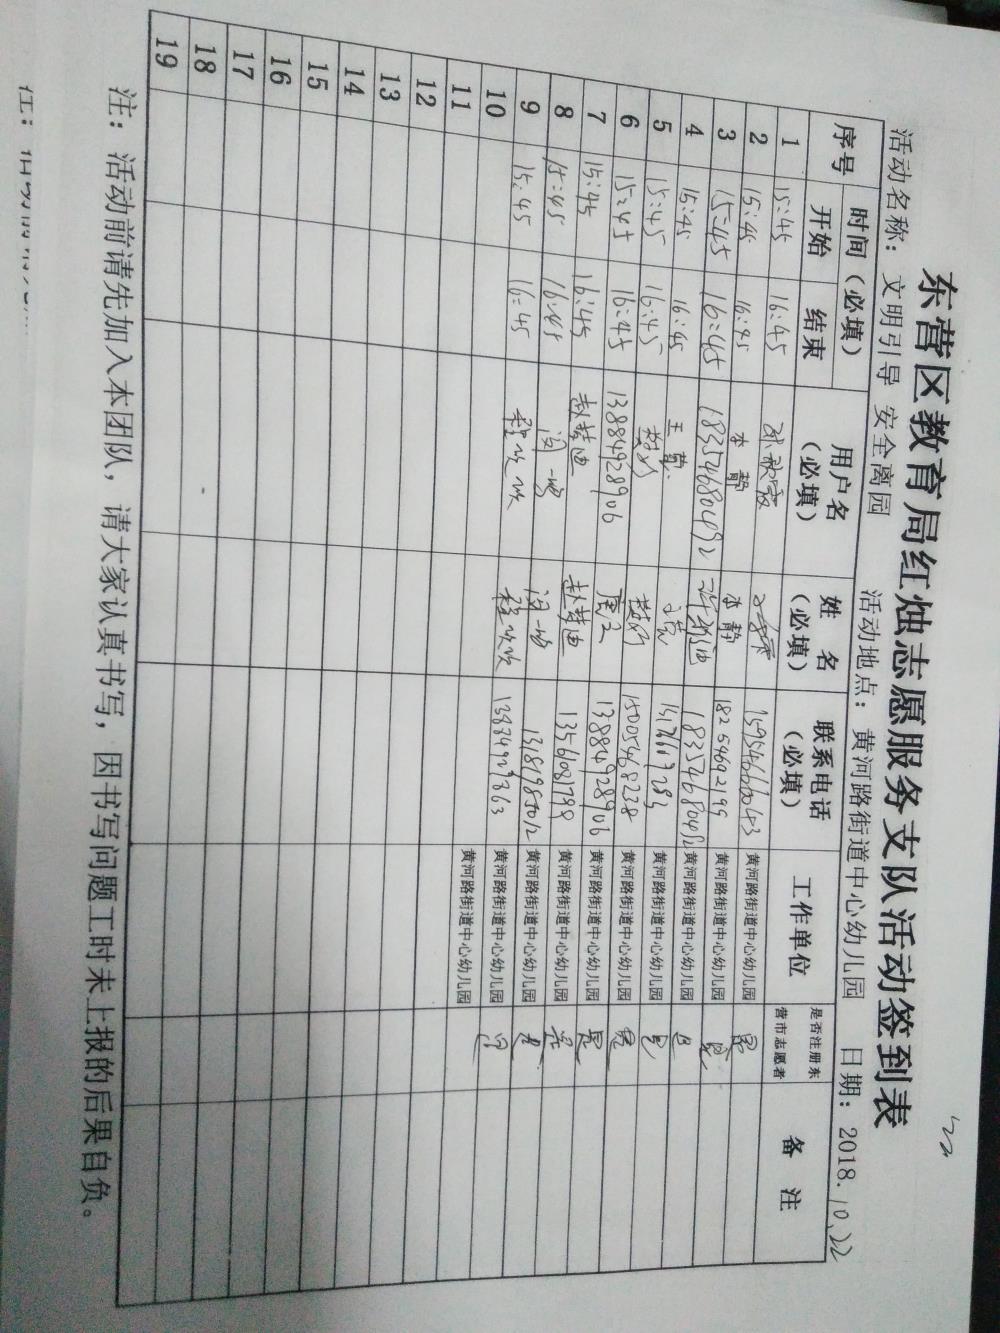 22
东营区教育局红烛志愿服务支队活动签到表
活动名称：文明引导 安全离园 活动地点：黄河路街道中心幼儿园 日期：2018.10.22
序号 时间（必填） 用户名（必填） 姓 名（必填） 联系电话（必填） 工作单位 是否注册东营市志愿者 备 注
开始 结束
1 15:45 16:45 黄河路街道中心幼儿园 是
2 15:45 16:45 李静 李静 18254602199 黄河路街道中心幼儿园 是
3 15:45 16:45 18354680492 18354680492 黄河路街道中心幼儿园 是
4 15:45 16:45 黄河路街道中心幼儿园 是
5 15:45 16:45 15005468238 黄河路街道中心幼儿园 是
6 15:45 16:45 13884928906 13884928906 黄河路街道中心幼儿园 是
7 15:45 16:45 赵梦迪 赵梦迪 13561081798 黄河路街道中心幼儿园 是
8 15:45 16:45 闫一鸣 闫一鸣 黄河路街道中心幼儿园 是
9 15:45 16:45 程次次 程次次 黄河路街道中心幼儿园 是
10 黄河路街道中心幼儿园
11
12
13
14
15
16
17
18
19
注：活动前请先加入本团队，请大家认真书写，因书写问题工时未上报的后果自负。